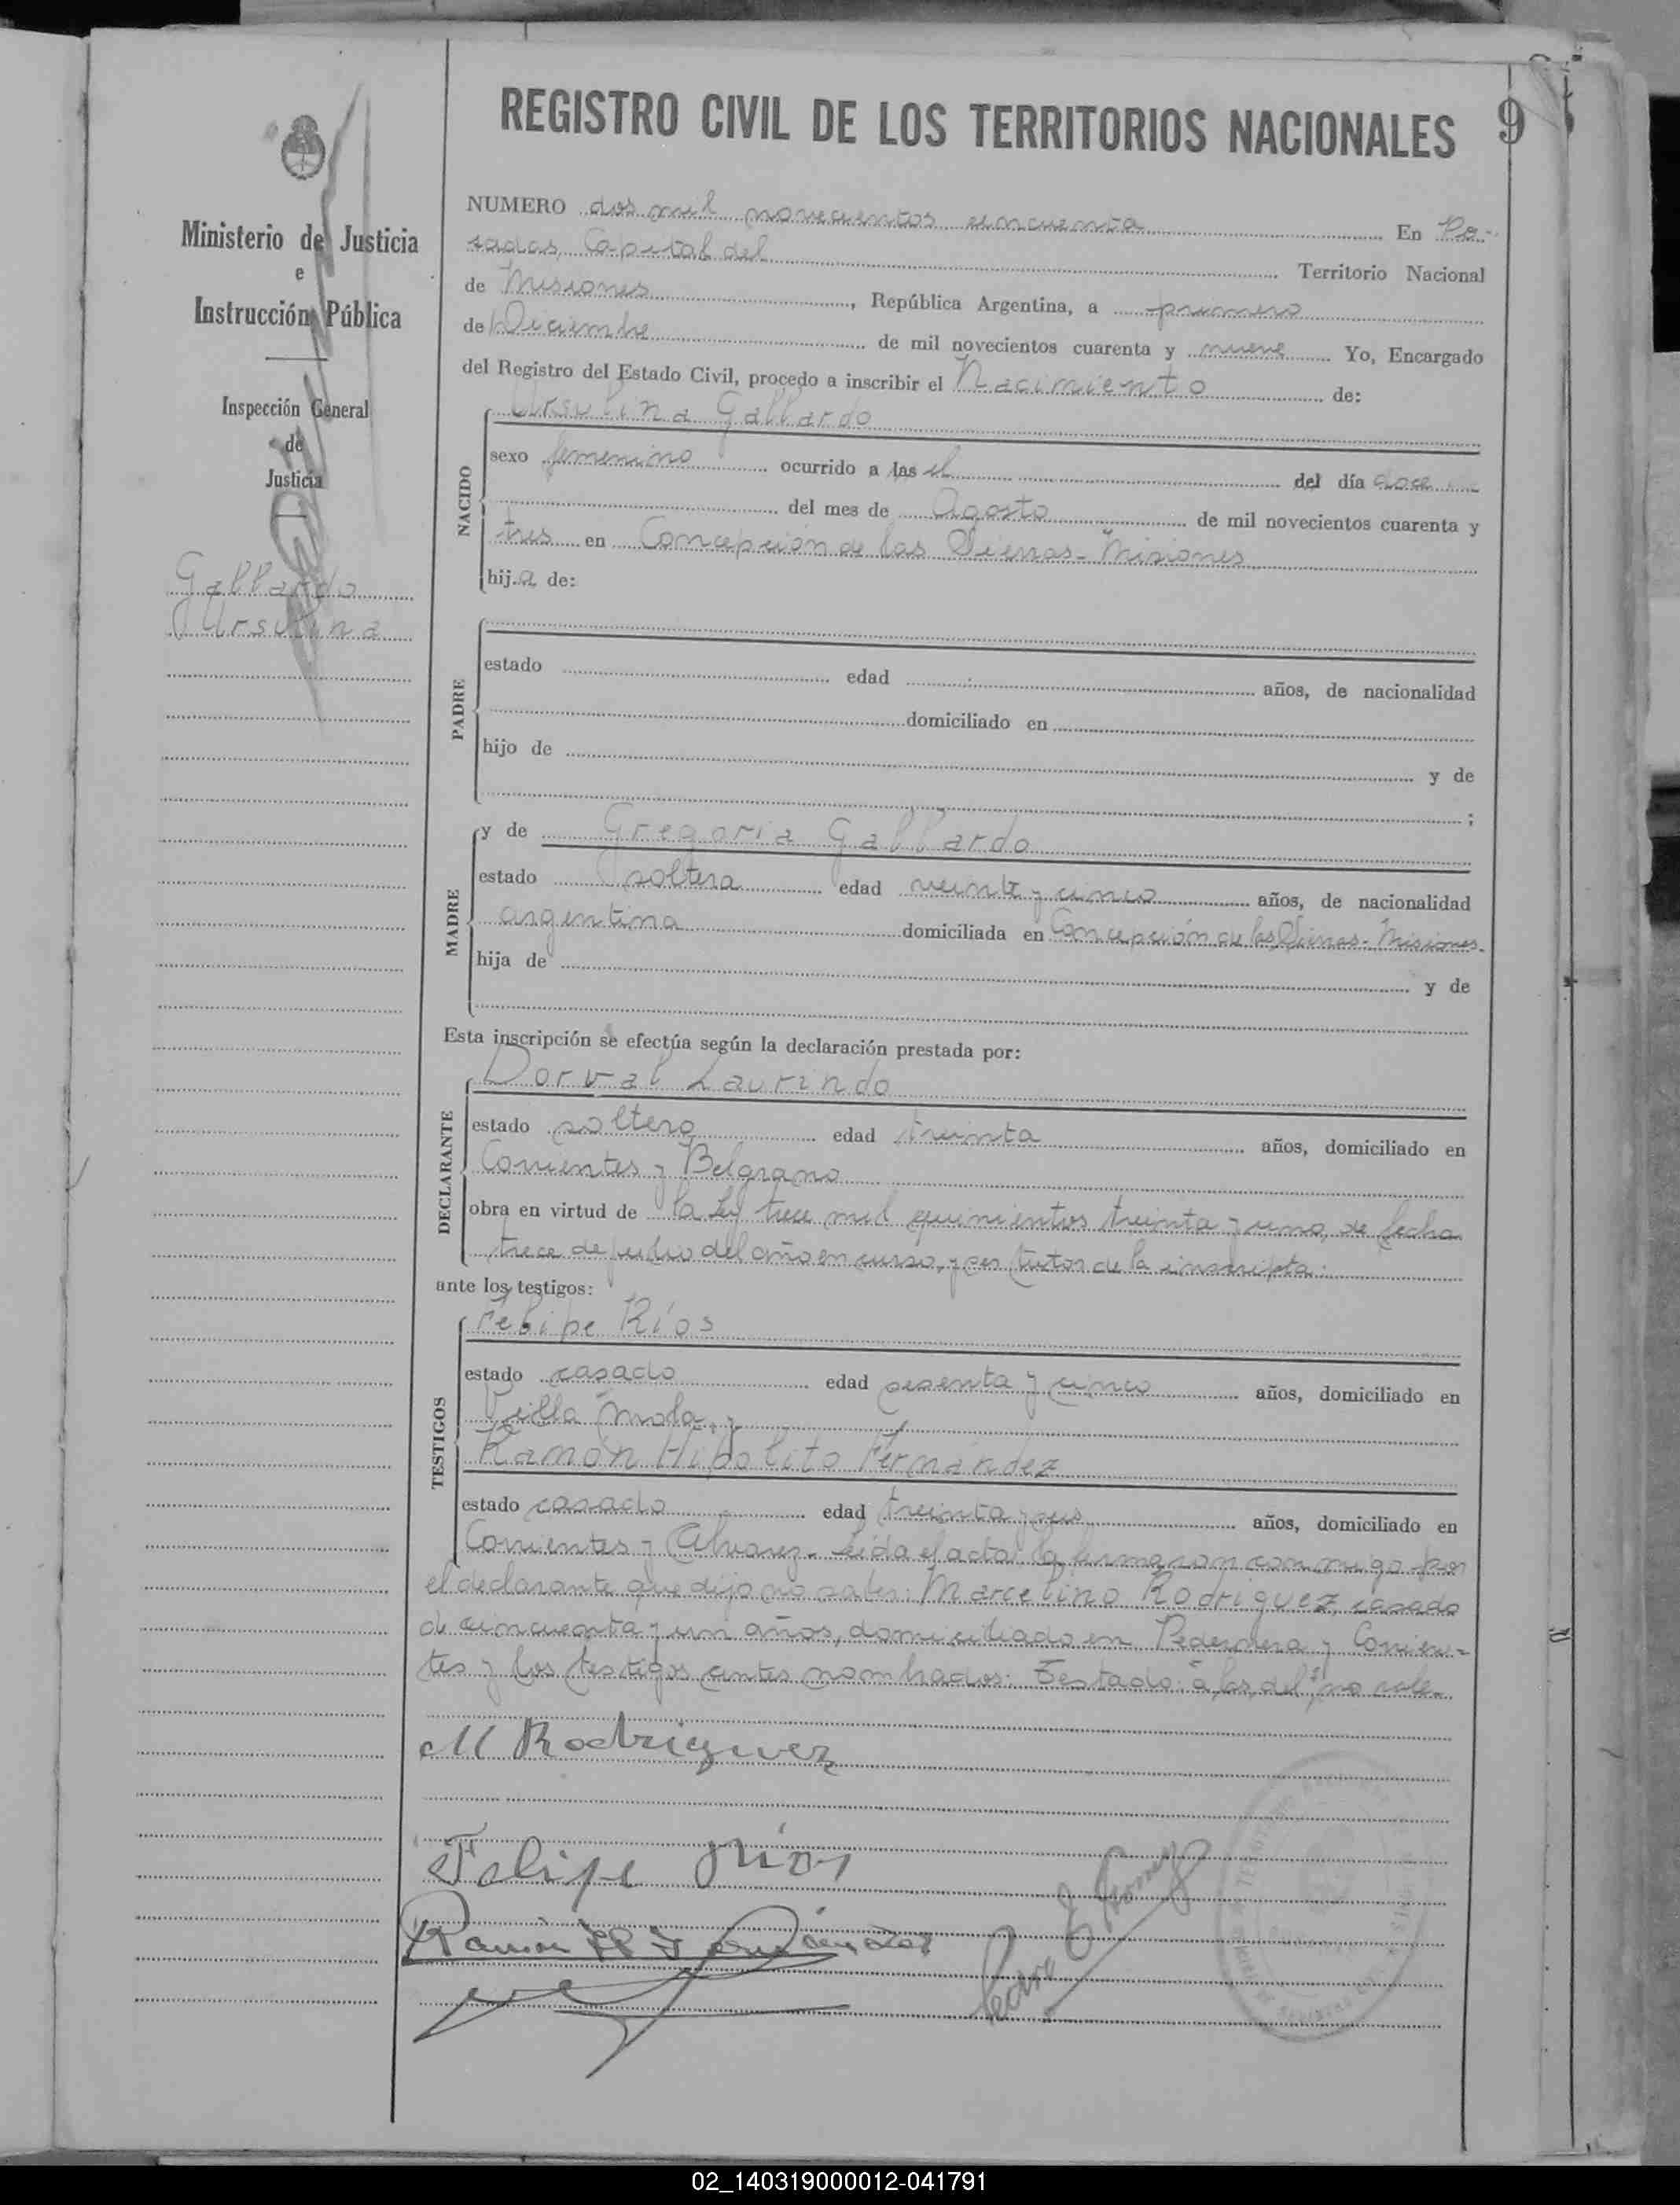 REGISTRO CIVIL DE LOS TERRITORIOS NACIONALES
9
Ministerio de Justicia
e
Instrucción Pública
Inspección General
de
Justicia
Gallardo
Ursulina
NUMERO dos mil novecientos cincuenta En Po-
sadas, Capital del Territorio Nacional
de Misiones, República Argentina, a primero
de Diciembre de mil novecientos cuarenta y nueve Yo, Encargado
del Registro del Estado Civil, procedo a inscribir el Nacimiento de:
Ursulina Gallardo
NACIDO
sexo femenino ocurrido a las el del día doce
del mes de Agosto de mil novecientos cuarenta y
tres en Concepción de las Sierras - Misiones
hija de:
PADRE
estado edad años, de nacionalidad
domiciliado en
hijo de y de
;
MADRE
y de Gregoria Gallardo
estado soltera edad veinte y cinco años, de nacionalidad
argentina domiciliada en Concepción de las Sierras - Misiones.
hija de y de
Esta inscripción se efectúa según la declaración prestada por:
DECLARANTE
Dorval Laurindo
estado soltero edad treinta años, domiciliado en
Corrientes y Belgrano
obra en virtud de la Ley trece mil quinientos treinta y uno, de fecha
trece de julio del año en curso, y ser tutor de la inscripta.
ante los testigos:
TESTIGOS
Felipe Ríos
estado casado edad sesenta y cinco años, domiciliado en
Villa Mola, y
Ramón Hipolito Fernández
estado casado edad treinta y seis años, domiciliado en
Corrientes y Alvarez. Leída el acta la firmaron conmigo por
el declarante que dijo no saber: Marcelino Rodriguez, casado
de cincuenta y un años, domiciliado en Pedernera y Corrien-
tes y los testigos antes nombrados: Testado: "a las, del", no vale.
M Rodriguez
Felipe Rios
Ramón H Fernández
Pedro E Gomez
02_140319000012-041791